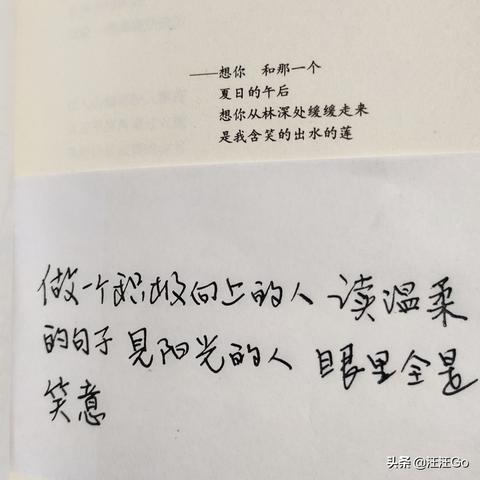 ——想你 和那一个
夏日的午后
想你从林深处缓缓走来
是我含笑的出水的莲
做一个积极向上的人 读温柔
的句子 见阳光的人 眼里全是
笑意
头条 @汪汪Go